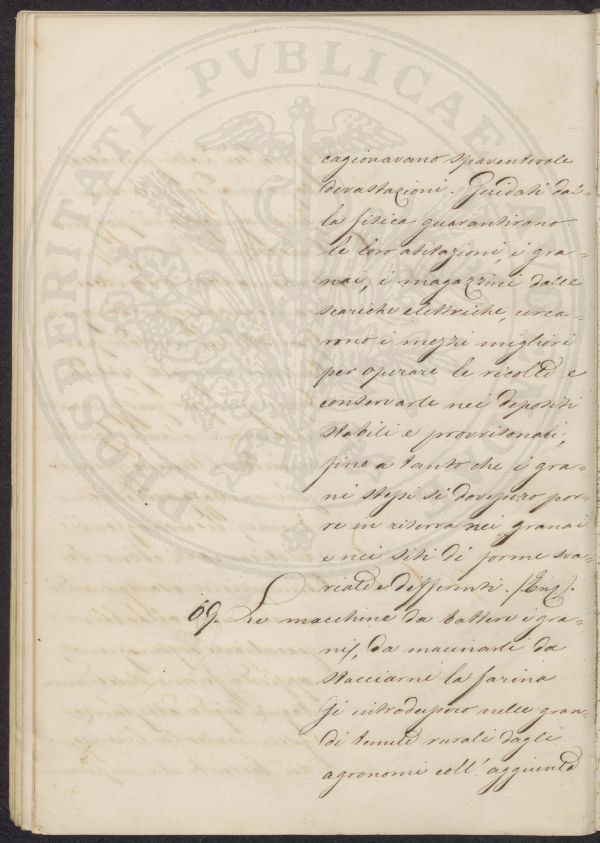 PROSPERITATI PVBLICAE
cagionavano spaventevole
devastazioni. Guidati dal-
la fisica guarantirono
le loro abitazioni, i gra-
nai, i magazzini dalle
scariche elettriche, cerca-
rono i mezzi migliori
per operare le ricolte e
conservarle nei depositi
stabili e provvisonali,
fino a tanto che i gra-
ni stessi si dovessero por-
re in riserva nei granai
e nei siti di forme sva-
riate e differenti.
69. Le macchine da battere i gra-
ni, da macinarli da
stacciarne la farina
si introdussero nelle gran-
di tenute rurali dagli
agronomi coll' aggiunta